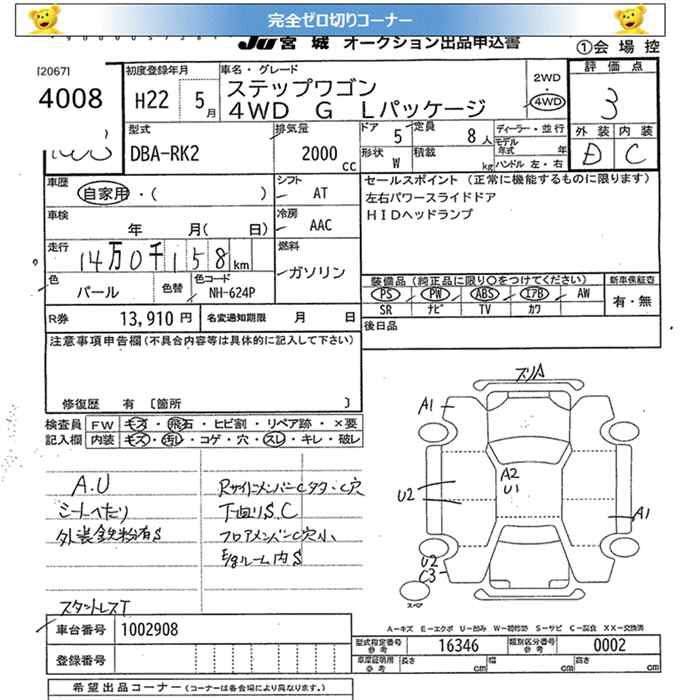 完全ゼロ切りコーナー
JU 宮城 オークション出品申込書
①会場控
[2067]
4008
初度登録年月
H22 5月
車名・グレード
ステップワゴン
4WD G Lパッケージ
2WD
・
4WD
評価点
3
外装 内装
D C
型式
DBA-RK2
排気量
2000 cc
ドア 5
定員 8人
形状 W
積載 kg
ディーラー・並行
モデル年式 年
ハンドル 左・右
車歴
自家用・( )
シフト AT
車検 年 月( 日)
冷房 AAC
走行
14万0千158km
燃料
ガソリン
色
パール
色替
色コード
NH-624P
セールスポイント (正常に機能するものに限ります)
左右パワースライドドア
HIDヘッドランプ
装備品(純正品に限り○をつけてください)
新車保証書
PS PW ABS エアB AW
SR ナビ TV カワ
有・無
R券 13,910円
名変通知期限 月 日
後日品
注意事項申告欄(不具合内容等は具体的に記入して下さい)
修復歴 有 [箇所 ]
検査員記入欄
FW キズ・飛石・ヒビ割・リペア跡・×要
内装 キズ・汚レ・コゲ・穴・スレ・キレ・破レ
A.U
シートへたり
外装鉄粉有S
スタントレスT
Rサイドメンバーcタタ・c穴
下回りS.C
フロアメンバーc穴小
E/gルーム内S
スリA
A1
A2
U1
U2
A1
U2
C3
スペア
A-キズ E-エクボ U-凹み W-補修跡 S-サビ C-腐食 XX-交換済
車台番号 1002908
登録番号
型式指定番号 参考 16346
類別区分番号 参考 0002
車庫証明用 参考 長さ cm 幅 cm 高さ cm
希望出品コーナー (コーナーは各会場により異なります。)